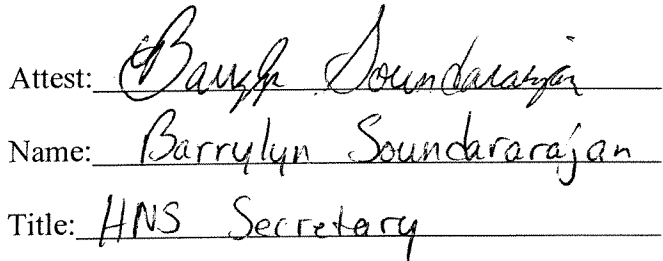 Attest: Barrylyn Soundararajan
Name: Barrylyn Soundararajan
Title: HNS Secretary